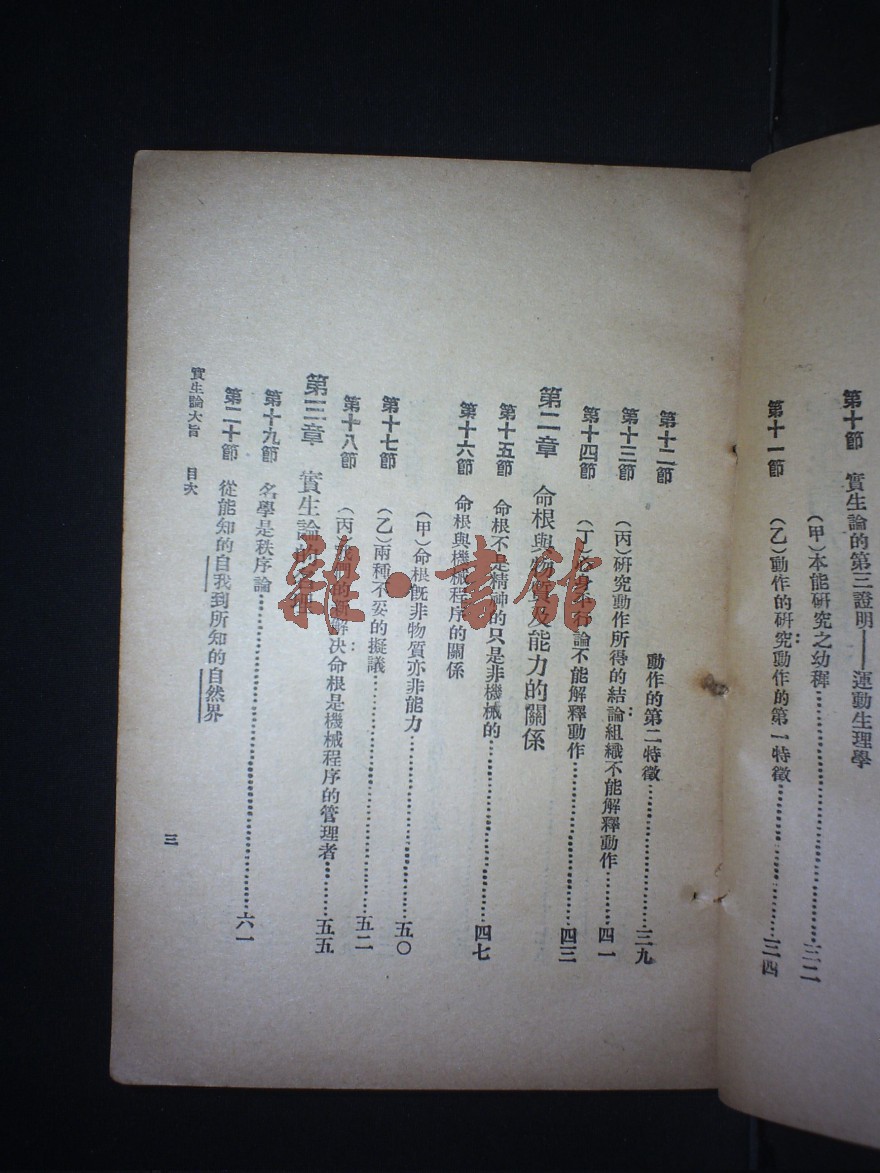 第十節 實生論的第三證明——運動生理學
(甲)本能研究之幼稺……三二
第十一節 (乙)動作的研究:動作的第一特徵……三四
第十二節 動作的第二特徵……三九
第十三節 (丙)研究動作所得的結論:組織不能解釋動作……四一
第十四節 (丁)心身平行論不能解釋動作……四三
第二章 命根與物質及能力的關係
第十五節 命根不是精神的只是非機械的……四七
第十六節 命根與機械程序的關係
(甲)命根旣非物質亦非能力……五〇
第十七節 (乙)兩種不妥的擬議……五二
第十八節 (丙)我們的新解決:命根是機械程序的管理者……五五
第三章 實生論的
第十九節 名學是秩序論……六一
第二十節 從能知的自我到所知的自然界
實生論大旨 目次
三
雜·書館